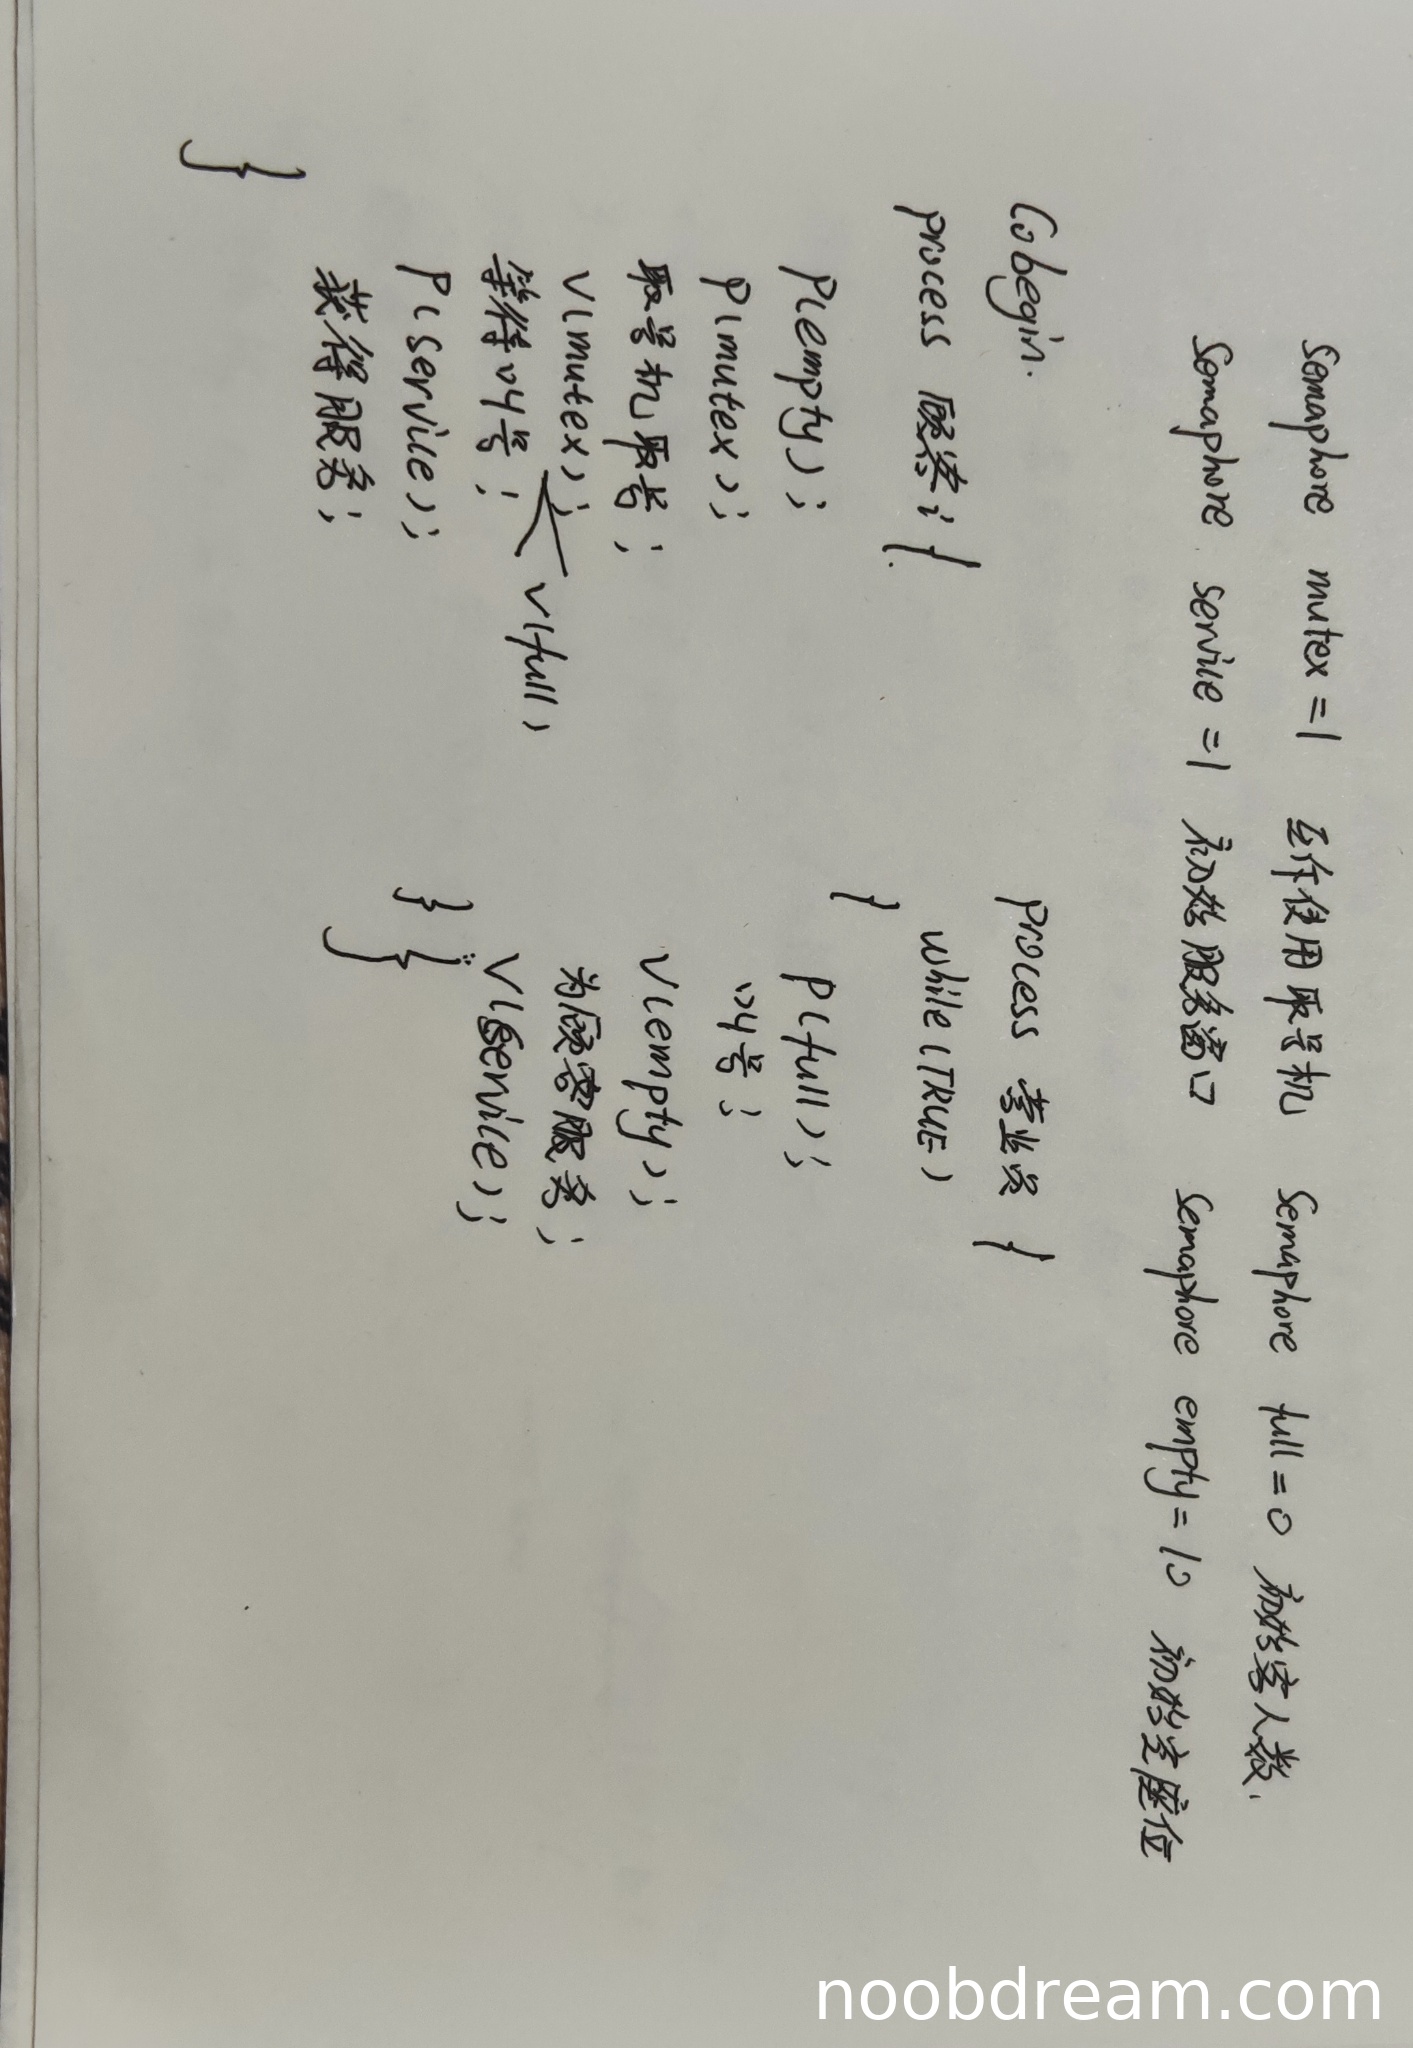 Semaphore mutex = 1 互斥使用取号机 Semaphore full = 0 初始客人数.
Semaphore service = 1 初始服务窗口 Semaphore empty = 10 初始空座位
Cobegin.
process 顾客i {
P(empty);
P(mutex);
取号机取号;
V(mutex);
V(full)
等待叫号;
P(service);
获得服务;
}
process 营业员 {
while(TRUE)
{
P(full);
叫号;
V(empty);
为顾客服务;
V(service);
}
}
noobdream.com